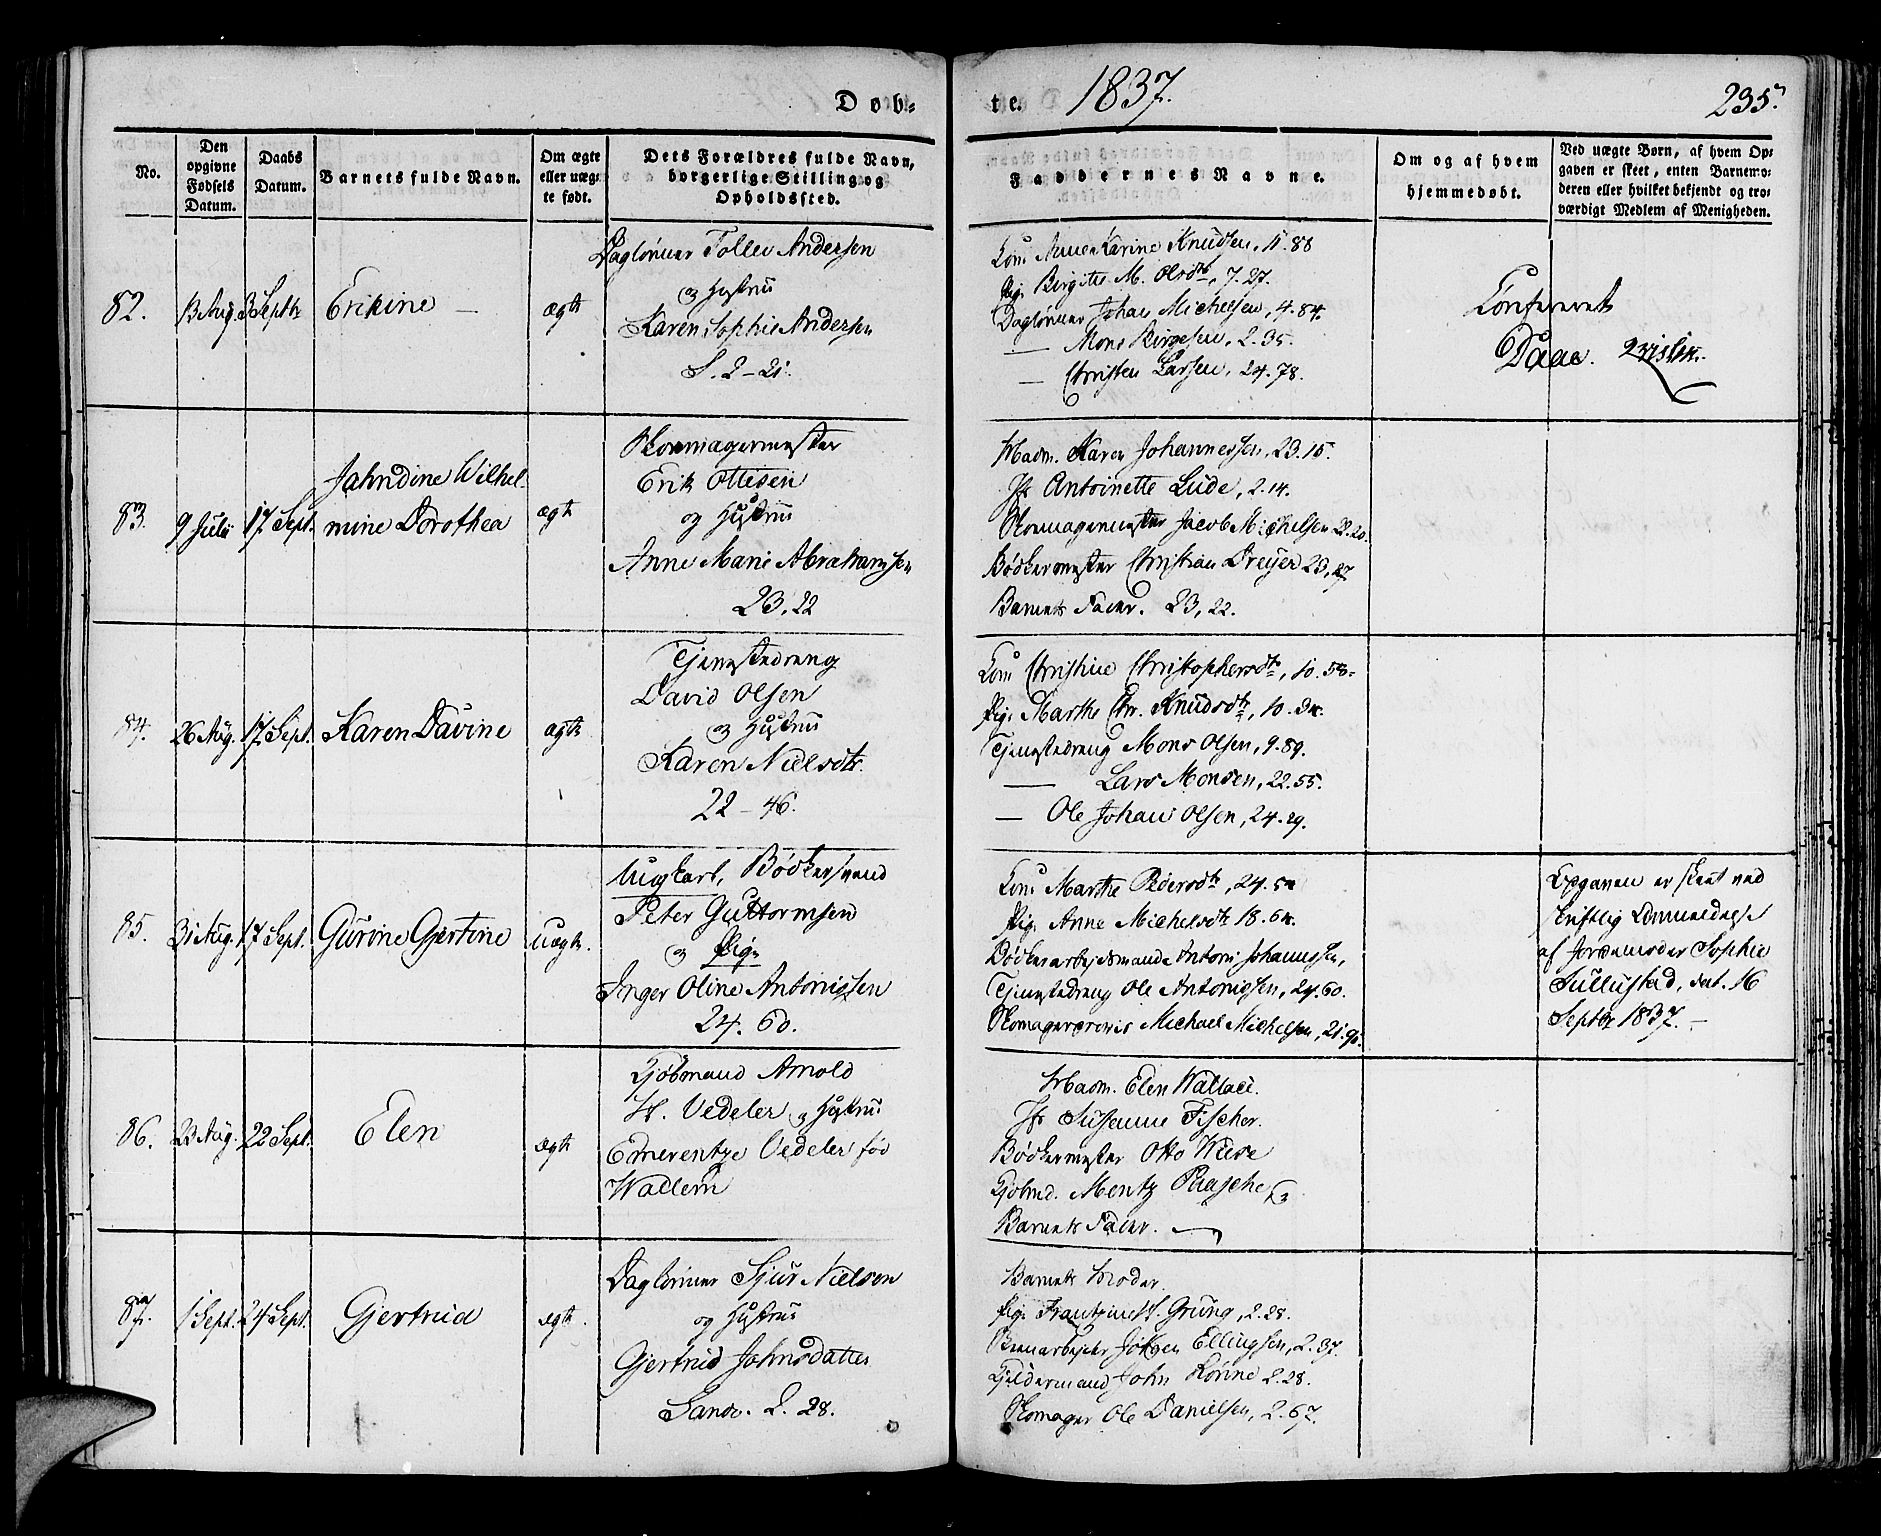 Døb-
te.
1837.
235.
No.
Den
opgivne
Fødsels
Datum.
Daabs
Datum.
Barnets fulde Navn.
Om ægte
eller uæg-
te født.
Dets Forældres fulde Navn,
borgerlige Stilling og
Opholdssted.
Faddernes Navne.
Om og af hvem
hjemmedøbt.
Ved uægte Børn, af hvem Op-
gaven er skeet, enten Barnemo-
deren eller hvilket bekjendt og tro-
værdigt Medlem af Menigheden.
82.
13 Aug.
3 Septbr
Erikine —
ægte
Dagleiner Tollev Andersen
og Hustru
Karen Sophie Andersen
S. 2-21.
Kone Anne Karine Knudsen, 11.88
Pige Birgitte M. Olsdtr, 7.27.
Dagleiner Johan Michelsen, 4.84.
— Mons Birgesen, 2.35.
— Christen Larsen, 24.78.
Daae.
83.
9 Julii
17 Sept.
Jahndine Wilhel-
mine Dorothea
ægte
Skomagermester
Erik Ottesen
og Hustru
Anne Marie Abrahamsen
23,22
Madm. Karen Johannessen, 23.15.
Jfr Antoinette Lude, 2.14.
Skomagermester Jacob Michelsen 22.20.
Bødkermester Christian Dreyer 23,27
Barnets Fader. 23,22.
84.
26 Aug.
17 Sept.
Karen Davine
ægte
Tjenestedreng
David Olsen
og Hustru
Karen Nielsdtr.
22-46.
Kone Christine Christophersdtr, 10.58.
Pige Marthe Chr. Knudsdtr, 10.
Tjenestedreng Mons Olsen, 9.89.
— Lars Monsen, 22.55.
— Ole Johan Olsen, 24.29.
85.
31 Aug.
17 Sept.
Gurine Gjertine
Uægte.
Ungkarl, Bødkersvend
Peter Guttormsen
og Pige
Inger Oline Antonissen
24.60.
Kone Marthe Pedersdtr, 24.
Pige Anne Michelsdtr 18.
Bødkerarbejdsmand Antoni Johannessen,
Tjenestedreng Ole Antonissen, 24.60.
Skomager Michael Michelsen, 21.
Opgaven er skeet ved
skriftlig Anmeldelse
af Jordemoder Sophie
Sullustad, dat. 16
Septbr 1837. —
86.
23 Aug.
22 Sept.
Elen
ægte
Kjøbmand Arnold
H. Vedeler og Hustru
Emerentze Vedeler fød
Wallem
Madm. Elen Wallace.
Jfr Susanne Fischer.
Bødkermester Otto Wiese
Kjøbmd. Mentz Paasche og
Barnets Fader. —
87.
1 Sept.
24 Sept.
Gjertrud
ægte.
Dagleiner Sjur Nielsen
og Hustru
Gjertrud Johnsdatter
Sandv. 2.28.
Barnets Moder.
Pige Frantzine H. Grung, 2.28.
Jørgen Ellingsen, 2.37.
John Rønne 2.28.
Skomager Ole Danielsen, 2.67.